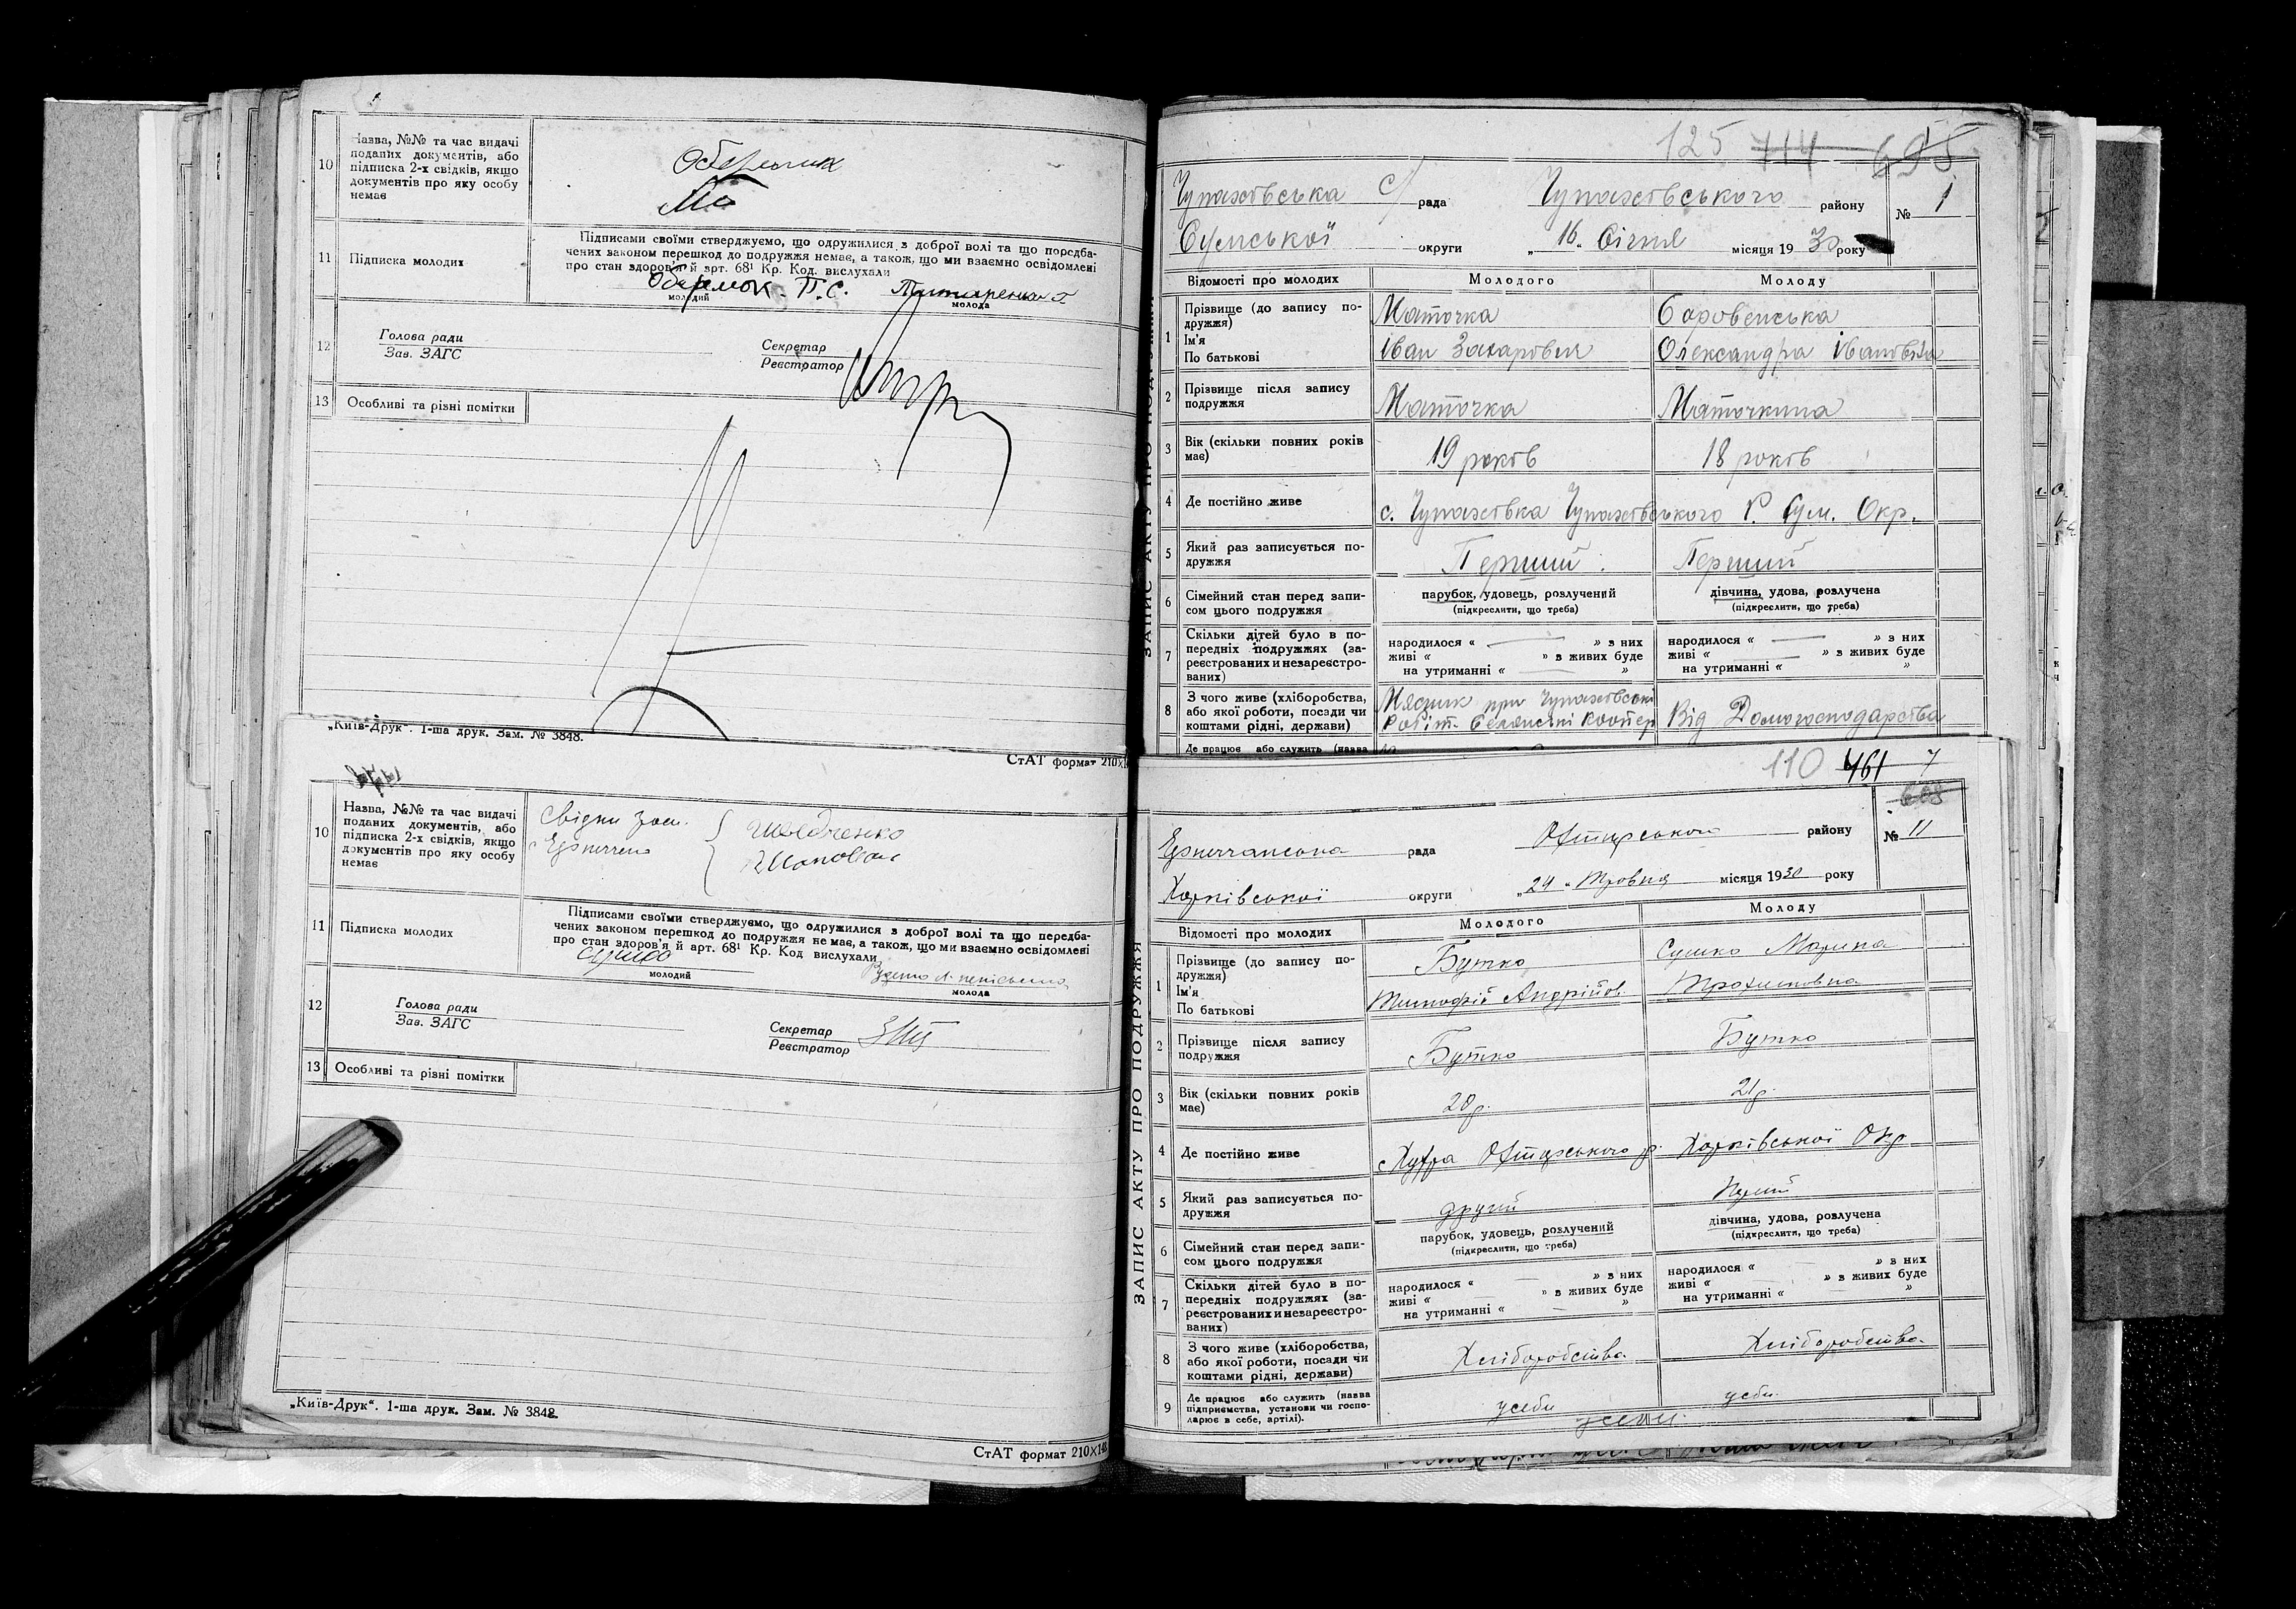 10
Назва, №№ та час видачі
поданих документів, або
підписка 2-х свідків, якщо
документів про яку особу
немає
11
Підписка молодих
Підписами своїми стверджуємо, що одружилися з доброї волі та що передба-
чених законом перешкод до подружжя немає, а також, що ми взаємно освідомлені
про стан здоров'я й арт. 68¹ Кр. Код. вислухали
Оберемок П.С.
молодий
молода
12
Голова ради
Зав. ЗАГС
Секретар
Реєстратор
13
Особливі та різні помітки
„Київ-Друк“. 1-ша друк. Зам. № 3848.
СтАТ формат 210×14
10
Назва, №№ та час видачі
поданих документів, або
підписка 2-х свідків, якщо
документів про яку особу
немає
Свідки
11
Підписка молодих
Підписами своїми стверджуємо, що одружилися з доброї волі та що передба-
чених законом перешкод до подружжя немає, а також, що ми взаємно освідомлені
про стан здоров'я й арт. 68¹ Кр. Код вислухали
молодий
молода
12
Голова ради
Зав. ЗАГС
Секретар
Реєстратор
13
Особливі та різні помітки
„Київ-Друк“. 1-ша друк. Зам. № 3848
СтАТ формат 210×148
125 714 695
Чупахівська с/ рада Чупахівського району № 1
Сумської округи „16“ Січня місяця 1930 року
ЗАПИС АКТУ ПРО ПОДРУЖЖЯ
Відомості про молодих Молодого Молоду
1
Прізвище (до запису по-
дружжя)
Ім'я
По батькові
Маточка
Іван Захарович
Боровенська
Олександра Івановна
2
Прізвище після запису
подружжя
Маточка
Маточкина
3
Вік (скільки повних років
має)
19 років
18 років
4
Де постійно живе
с. Чупахівка Чупахівського Р. Сум. Окр.
5
Який раз записується по-
дружжя
Перший
Перший
6
Сімейний стан перед запи-
сом цього подружжя
парубок, удовець, розлучений
(підкреслити, що треба)
дівчина, удова, розлучена
(підкреслити, що треба)
7
Скільки дітей було в по-
передніх подружжях (за-
реєстрованих и незареєстро-
ваних)
народилося « — » з них
живі « » в живих буде
на утриманні « — »
народилося « — » з них
живі « — » в живих буде
на утриманні « »
8
З чого живе (хліборобства,
або якої роботи, посади чи
коштами рідні, держави)
при Чупахівські
Робіт. Селянські Коопер
Від Домогосподарства
Де працює або служить (назва
110 461 7
608
рада Охтирського району № 11
Харківської округи „24“ Травня місяця 1930 року
ЗАПИС АКТУ ПРО ПОДРУЖЖЯ
Відомості про молодих Молодого Молоду
1
Прізвище (до запису по-
дружжя)
Ім'я
По батькові
Бутко
Тимофій Андрійов.
Сушко Марина
Трохимовна
2
Прізвище після запису
подружжя
Бутко
Бутко
3
Вік (скільки повних років
має)
20 р.
21 р.
4
Де постійно живе
с Хухра Охтирського р. Харківської Окр
5
Який раз записується по-
дружжя
другий
6
Сімейний стан перед запи-
сом цього подружжя
парубок, удовець, розлучений
(підкреслити, що треба)
дівчина, удова, розлучена
(підкреслити, що треба)
7
Скільки дітей було в по-
передніх подружжях (за-
реєстрованих и незареєстро-
ваних)
народилося « — » в них
живі « — » в живих буде
на утриманні « — »
народилося « — » в них
живі « — » в живих буде
на утриманні « — »
8
З чого живе (хліборобства,
або якої роботи, посади чи
коштами рідні, держави)
Хліборобства
Хліборобства
9
Де працює або служить (назва
підприємства, установи чи госпо-
дарює в себе, артілі).
усеби
усеби